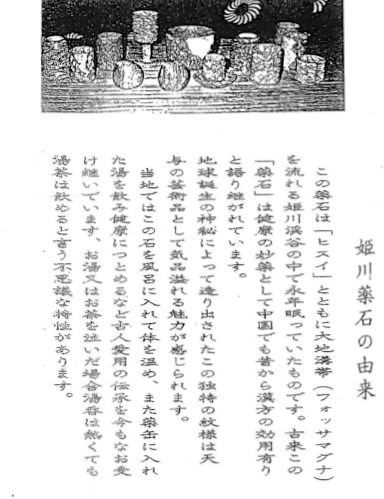 姫川薬石の由来
この薬石は「ヒスイ」とともに大地溝帯（フォッサマグナ）
を流れる姫川渓谷の中で永年眠っていたものです。古来この
「薬石」は健康の妙薬として中国でも昔から漢方の効用有り
と語り継がれています。
地球誕生の神秘によって造り出されたこの独特の紋様は天
与の芸術品として気品溢れる魅力が感じられます。
当地ではこの石を風呂に入れて体を温め、また薬缶に入れ
た湯を飲み健康につとめるなど古人愛用の伝承を今もなお受
け継いでいます、お湯又はお茶を注いだ場合湯呑は熱くても
湯茶は飲めると言う不思議な特性があります。